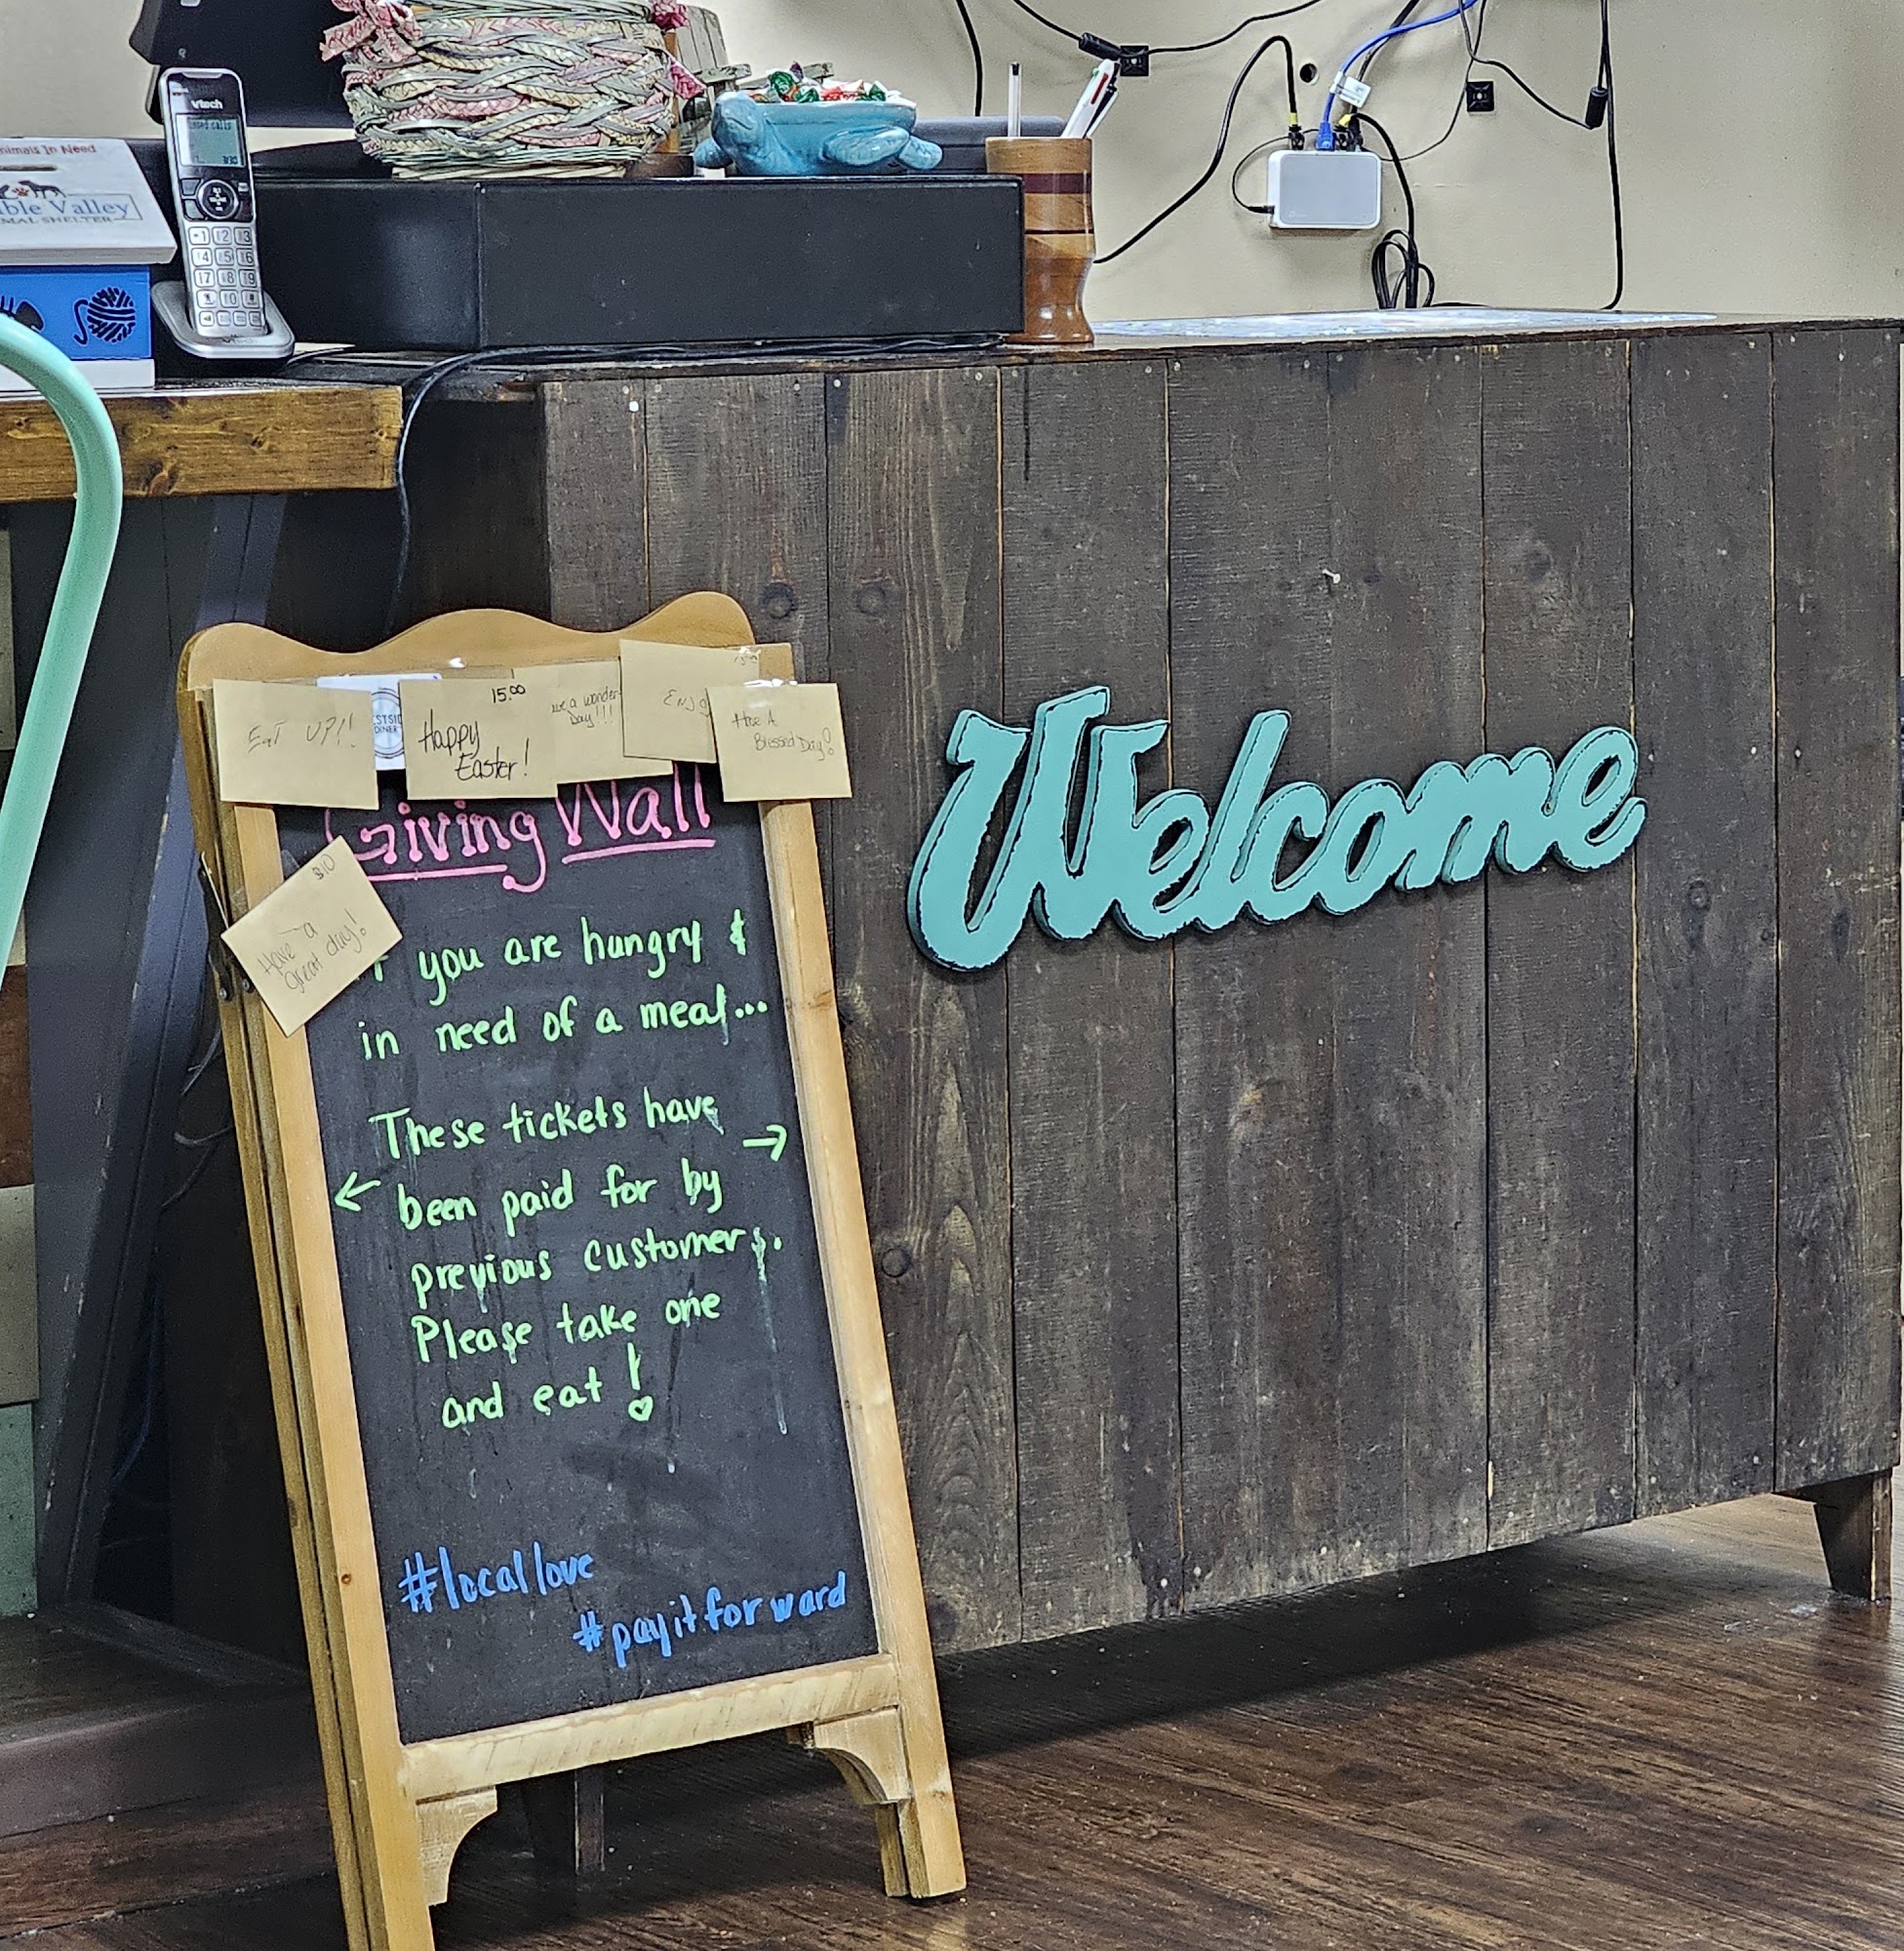 vtech
Animals In Need
ble Valley
MAL SHELTER
1 2 3
4 5 6
7 8 9
0 #
EAT UP!!
STSID
DINER
15.00
Happy
Easter!
ve a wonder
Day!!!
Enjo
Have A
Blessed Day!
Giving Wall
$10
Have a
great day!
f you are hungry &
in need of a meal...
These tickets have
been paid for by
previous customers.
Please take one
and eat!
#locallove
#payitforward
Welcome